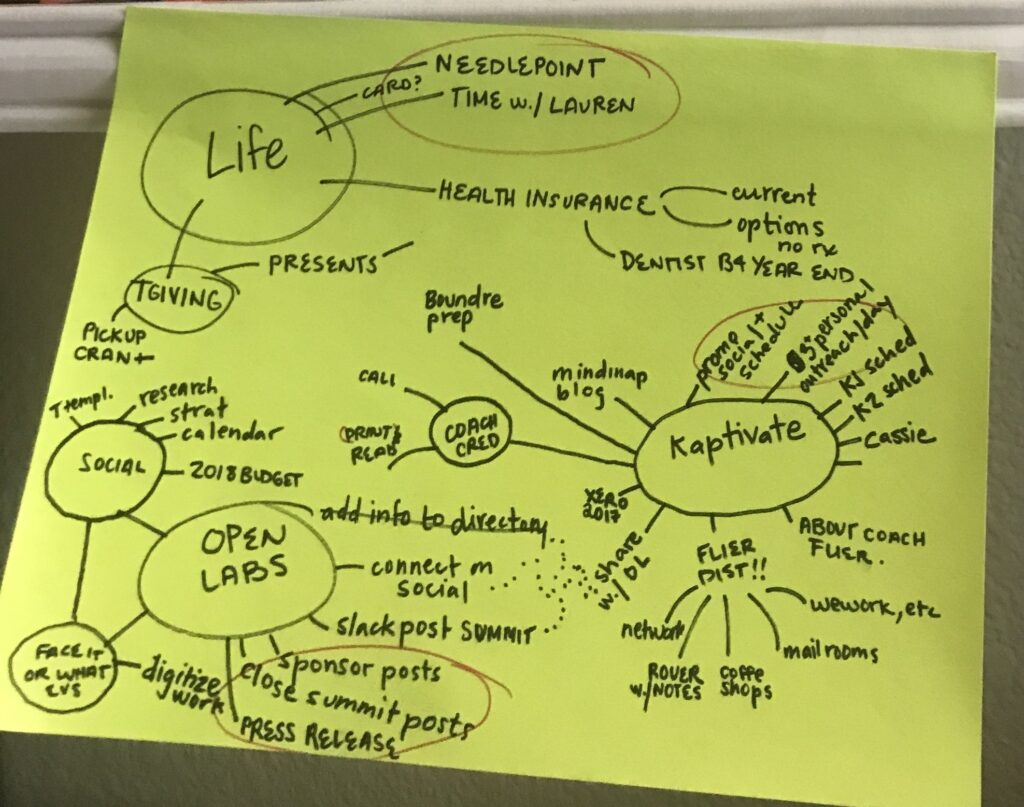 NEEDLEPOINT
CARD?
TIME W./ LAUREN
Life
HEALTH INSURANCE
current
options
no rx
DENTIST B4 YEAR END
PRESENTS
TGIVING
PICKUP
CRAN +
Boundre
prep
promo
social +
schedule
5 personal
outreach/day
K1 sched
K2 sched
Cassie
mindmap
blog
Kaptivate
CALL
COACH
CRED
PRINT &
READ
T templ.
research
strat
calendar
SOCIAL
2018 BUDGET
XERO
2017
share
w./ OL
ABOUT COACH
FLIER.
FLIER
DIST!!
wework, etc
mail rooms
coffe
shops
ROVER
w./NOTES
network
OPEN
LABS
add info to directory
connect on
social
slack post SUMMIT
sponsor posts
close summit posts
PRESS RELEASE
digitize
work
FACE IT
OR WHAT
EVS